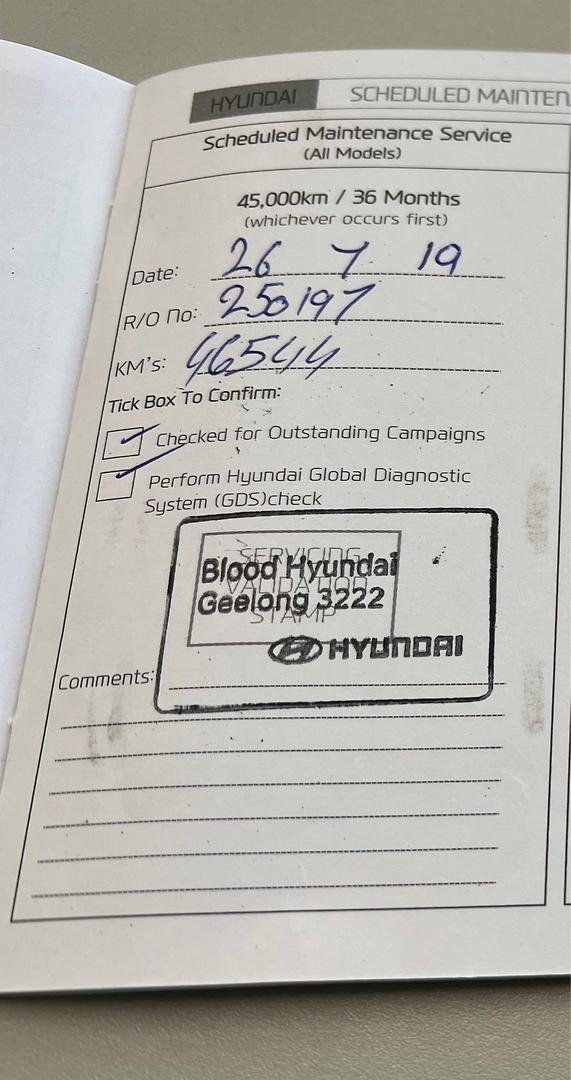 HYUNDAI SCHEDULED MAINTEN
Scheduled Maintenance Service
(All Models)
45,000km / 36 Months
(whichever occurs first)
Date: 26 7 19
R/O No: 250197
KM's: 46544
Tick Box To Confirm:
Checked for Outstanding Campaigns
Perform Hyundai Global Diagnostic
System (GDS)check
SERVICING
Blood Hyundai
VALIDATION
Geelong 3222
STAMP
HYUNDAI
Comments: